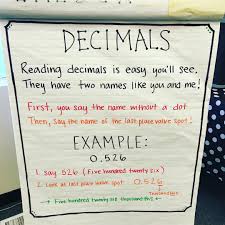 DECIMALS
Reading decimals is easy you'll see,
They have two names like you and me!
First, you say the name without a dot
Then, Say the name of the last place value spot.
EXAMPLE:
0.526
1. say 526 (Five hundred twenty six)
2. Look at last place value spot 0.526
Thousandths
Five hundred twenty six thousandths